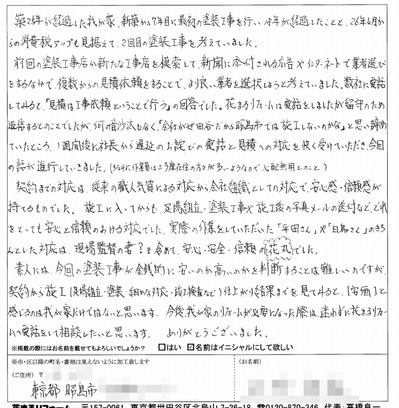 築26年が経過した我が家、新築から7年目に最初の塗装工事を行い、14年が経過したことと、26年4月か
らの消費税アップも見据えて、2回目の塗装工事を考えていました。
前回の塗装工事店か新たな工事店を模索して、新聞に折込される広告やインターネットで業者選び
をするなかで、複数からの見積依頼をすることで、より良い業者を選択しようと考えていました。数社に電話
してみると、「見積は工事依頼ということで行う」の回答でした。花まるリフォームは電話をしましたが留守のため
返答するとのことでしたが、何の音沙汰もなく「会社が世田谷だから昭島市では施工しないのかな」と思い諦め
ていたところ、1週間後に社長から遅延のお詫びの電話と見積への対応を快く受けていただき、今回
の話が進行していきました。
契約までの対応は、従来の職人気質による対応から会社組織としての対応で、安心感・信頼感が
持てるものでした。施工に入ってからも、足場組立・塗装工事や施工後の写真メールの送付など、どれ
をとっても安心と信頼のおける対応でした。実際の作業をしていただいた
んとした対応は、現場監督の 含めて、安心・安全・信頼の花丸でした。
素人には、今回の塗装工事が金銭的に安いのか高いのかを判断することは難しいのですが、
契約から施工(足場組立・塗装・細かな対応・施工検査など)仕上がり結果までを見てみると、「安価」と
感じるのは我が家だけではないと思います。今後我が家のリフォームが必要になった際は、迷わずに花まるリフォー
ムへ電話をして相談したいと思います。ありがとうございました。
※掲載の際にはお名前を載せてもよろしいでしょうか? □はい ☑名前はイニシャルにして欲しい
※市・区以降の町名・番地は見えないように加工致します
(ご住所) 〒
(お名前)
東京都 昭島市
花まるリフォーム 〒157-0061 東京都世田谷区北烏山7-26-18 ☎0120-870-346 代表:高橋良一